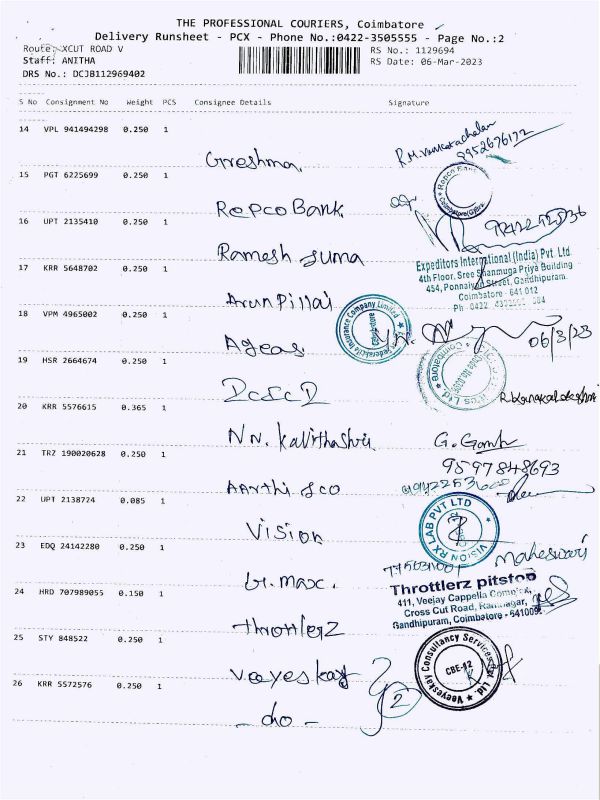 THE PROFESSIONAL COURIERS, Coimbatore
Delivery Runsheet - PCX - Phone No.:0422-3505555 - Page No.:2
Route: XCUT ROAD V
RS No.: 1129694
Staff: ANITHA
RS Date: 06-Mar-2023
DRS No.: DCJB112969402
S No Consignment No Weight PCS Consignee Details Signature
14 VPL 941494298 0.250 1
Greshma
15 PGT 6225699 0.250 1
Repco Bank
16 UPT 2135410 0.250 1
Ramesh suma
Expeditors International (India) Pvt. Ltd.
4th Floor, Sree Shanmuga Priya Building
454, Ponnaiyan Street, Gandhipuram.
Coimbatore - 641 012
17 KRR 5648702 0.250 1
Arun Pillai
18 VPM 4965002 0.250 1
Ageas
06/3/23
19 HSR 2664674 0.250 1
DCSCD
20 KRR 5576615 0.365 1
NN. Kavithashri
21 TRZ 190020628 0.250 1
9597848693
Aanthi sco
22 UPT 2138724 0.085 1
Vision
VISION RX LAB PVT LTD
23 EDQ 24142280 0.250 1
Maheswari
Gt. max.
24 HRD 707989055 0.150 1
Throttlerz pitstop
411, Veejay Cappella Complex,
Cross Cut Road, Ramnagar,
Gandhipuram, Coimbatore - 641009.
Throttlerz
25 STY 848522 0.250 1
Veeyeskay Consultancy Services Pvt. Ltd.
CBE-12
Veeyeskay
26 KRR 5572576 0.250 1
2
- do -